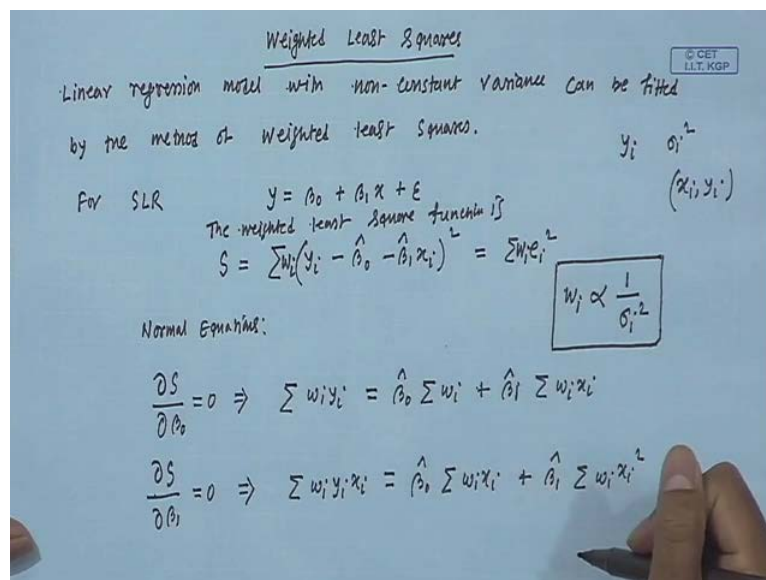 Weighted Least Squares
© CET
I.I.T. KGP
Linear regression model with non-constant variance can be fitted
by the method of weighted least squares.
yᵢ σᵢ²
(xᵢ, yᵢ)
For SLR y = β₀ + β₁ x + ε
The weighted least square function is
S = ∑wᵢ(yᵢ - β̂₀ - β̂₁xᵢ)² = ∑wᵢeᵢ²
wᵢ ∝ 1/σᵢ²
Normal Equations:
∂S/∂β₀ = 0 ⇒ ∑ wᵢyᵢ = β̂₀ ∑ wᵢ + β̂₁ ∑ wᵢxᵢ
∂S/∂β₁ = 0 ⇒ ∑ wᵢyᵢxᵢ = β̂₀ ∑ wᵢxᵢ + β̂₁ ∑ wᵢxᵢ²